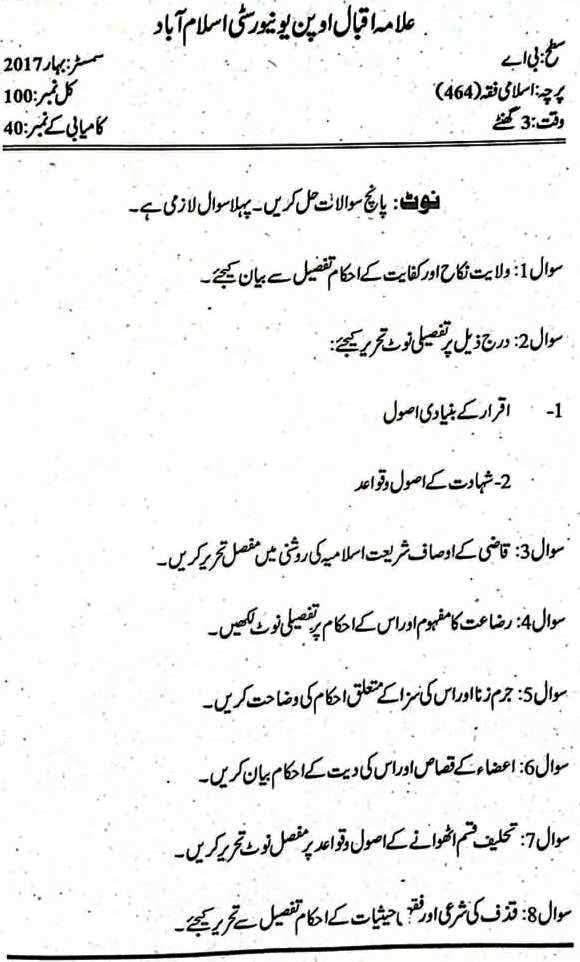 علامہ اقبال اوپن یونیورسٹی اسلام آباد
سطح: بی اے سمسٹر: بہار 2017
پرچہ: اسلامی فقہ (464) کل نمبر: 100
وقت: 3 گھنٹے کامیابی کے نمبر: 40
نوٹ: پانچ سوالات حل کریں۔ پہلا سوال لازمی ہے۔
سوال 1: ولایت نکاح اور کفایت کے احکام تفصیل سے بیان کیجئے۔
سوال 2: درج ذیل پر تفصیلی نوٹ تحریر کیجئے:
1- اقرار کے بنیادی اصول
2- شہادت کے اصول و قواعد
سوال 3: قاضی کے اوصاف شریعت اسلامیہ کی روشنی میں مفصل تحریر کریں۔
سوال 4: رضاعت کا مفہوم اور اس کے احکام پر تفصیلی نوٹ لکھیں۔
سوال 5: جرم زنا اور اس کی سزا کے متعلق احکام کی وضاحت کریں۔
سوال 6: اعضاء کے قصاص اور اس کی دیت کے احکام بیان کریں۔
سوال 7: تحلیف قسم اٹھوانے کے اصول و قواعد پر مفصل نوٹ تحریر کریں۔
سوال 8: قذف کی شرعی اور فقہی حیثیات کے احکام تفصیل سے تحریر کیجئے۔